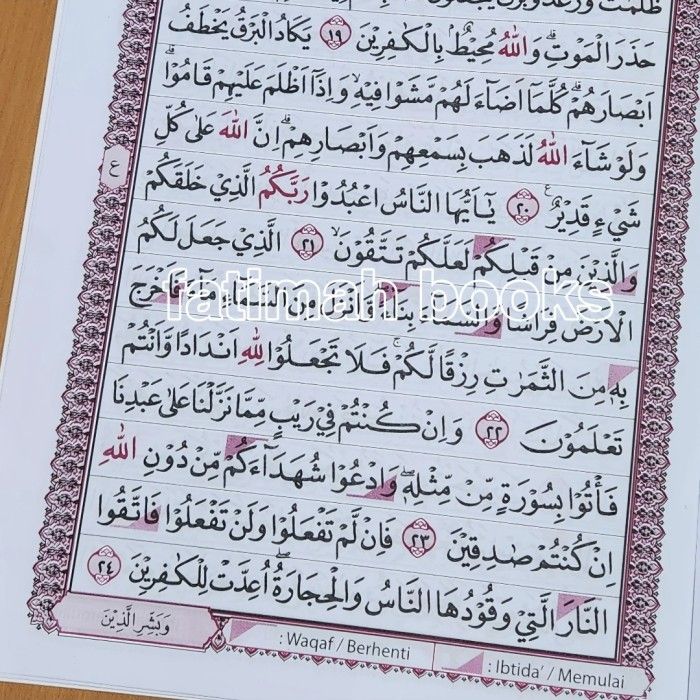 ظُلُمٰتٌ وَّرَعْدٌ وَّبَرْقٌ
حَذَرَ الْمَوْتِۗ وَاللّٰهُ مُحِيْطٌۢ بِالْكٰفِرِيْنَ ١٩ يَكَادُ الْبَرْقُ يَخْطَفُ
اَبْصَارَهُمْۗ كُلَّمَآ اَضَاۤءَ لَهُمْ مَّشَوْا فِيْهِۙ وَاِذَآ اَظْلَمَ عَلَيْهِمْ قَامُوْاۗ
وَلَوْ شَاۤءَ اللّٰهُ لَذَهَبَ بِسَمْعِهِمْ وَاَبْصَارِهِمْۗ اِنَّ اللّٰهَ عَلٰى كُلِّ
ع
شَيْءٍ قَدِيْرٌࣖ ٢٠ يٰٓاَيُّهَا النَّاسُ اعْبُدُوْا رَبَّكُمُ الَّذِيْ خَلَقَكُمْ
وَالَّذِيْنَ مِنْ قَبْلِكُمْ لَعَلَّكُمْ تَتَّقُوْنَۙ ٢١ الَّذِيْ جَعَلَ لَكُمُ
الْاَرْضَ فِرَاشًا وَّالسَّمَاۤءَ بِنَاۤءًۖ وَّاَنْزَلَ مِنَ السَّمَاۤءِ مَاۤءً فَاَخْرَجَ
fatimah books
بِهٖ مِنَ الثَّمَرٰتِ رِزْقًا لَّكُمْۚ فَلَا تَجْعَلُوْا لِلّٰهِ اَنْدَادًا وَّاَنْتُمْ
تَعْلَمُوْنَ ٢٢ وَاِنْ كُنْتُمْ فِيْ رَيْبٍ مِّمَّا نَزَّلْنَا عَلٰى عَبْدِنَا
فَأْتُوْا بِسُوْرَةٍ مِّنْ مِّثْلِهٖۖ وَادْعُوْا شُهَدَاۤءَكُمْ مِّنْ دُوْنِ اللّٰهِ
اِنْ كُنْتُمْ صٰدِقِيْنَ ٢٣ فَاِنْ لَّمْ تَفْعَلُوْا وَلَنْ تَفْعَلُوْا فَاتَّقُوا
النَّارَ الَّتِيْ وَقُوْدُهَا النَّاسُ وَالْحِجَارَةُۖ اُعِدَّتْ لِلْكٰفِرِيْنَ ٢٤
وَبَشِّرِ الَّذِيْنَ
: Waqaf / Berhenti
: Ibtida' / Memulai